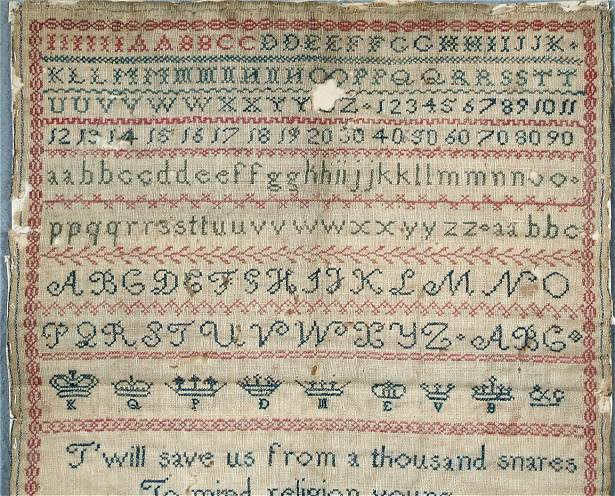 A A B B C C D D E E F F G G H H I I J J K
K L L M M M M N N N N O O P P Q Q R R S S T T
U U V V W W X X Y Y Z 1 2 3 4 5 6 7 8 9 10 11
12 13 14 15 16 17 18 19 20 30 40 50 60 70 80 90
a a b b c c d d e e f f g g h h i i j j k k l l m m n n o o
p p q q r r s s t t u u v v w w x x y y z z a a b b c
A B C D E F G H I J K L M N O
P Q R S T U V W X Y Z A B C
K Q P D M E V B &c
T'will save us from a thousand snares
To mind religion young